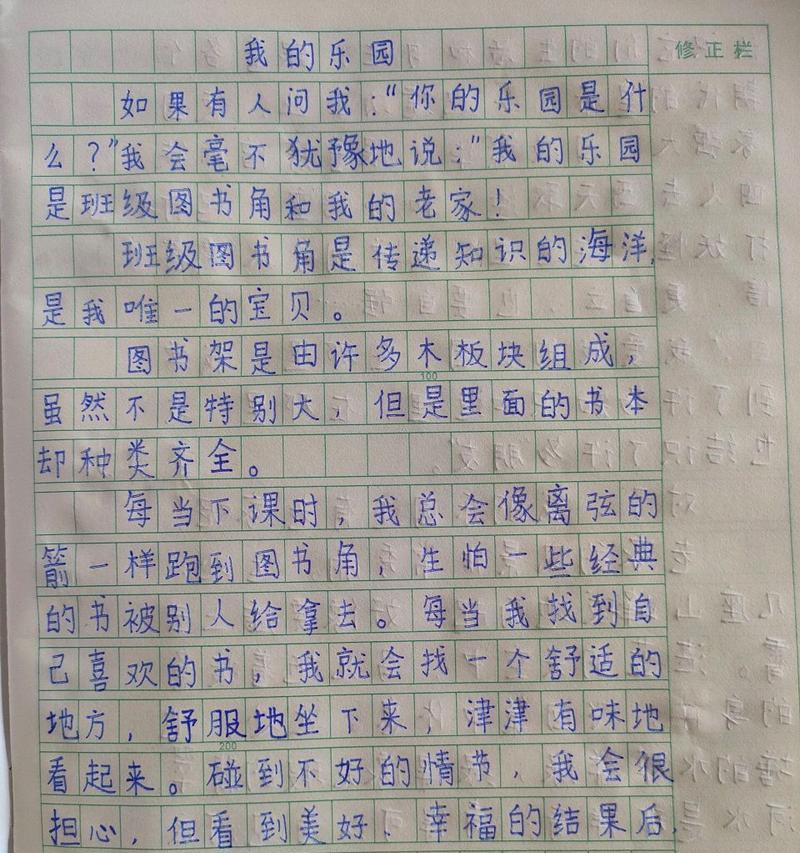 我的乐园
修正栏
如果有人问我:“你的乐园是什
么?”我会毫不犹豫地说:“我的乐园
是班级图书角和我的老家!
班级图书角是传递知识的海洋,
是我唯一的宝贝。
图书架是由许多木板块组成,
虽然不是特别大,但是里面的书本
却种类齐全。
100
每当下课时,我总会像离弦的
箭一样跑到图书角,生怕一些经典
的书被别人给拿去。每当我找到自
己喜欢的书,我就会找一个舒适的
地方,舒服地坐下来,津津有味地
200
看起来。碰到不好的情节,我会很
担心,但看到美好、幸福的结果后,